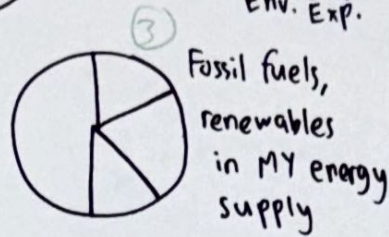 Env. Exp.
3
Fossil fuels,
renewables
in MY energy
supply